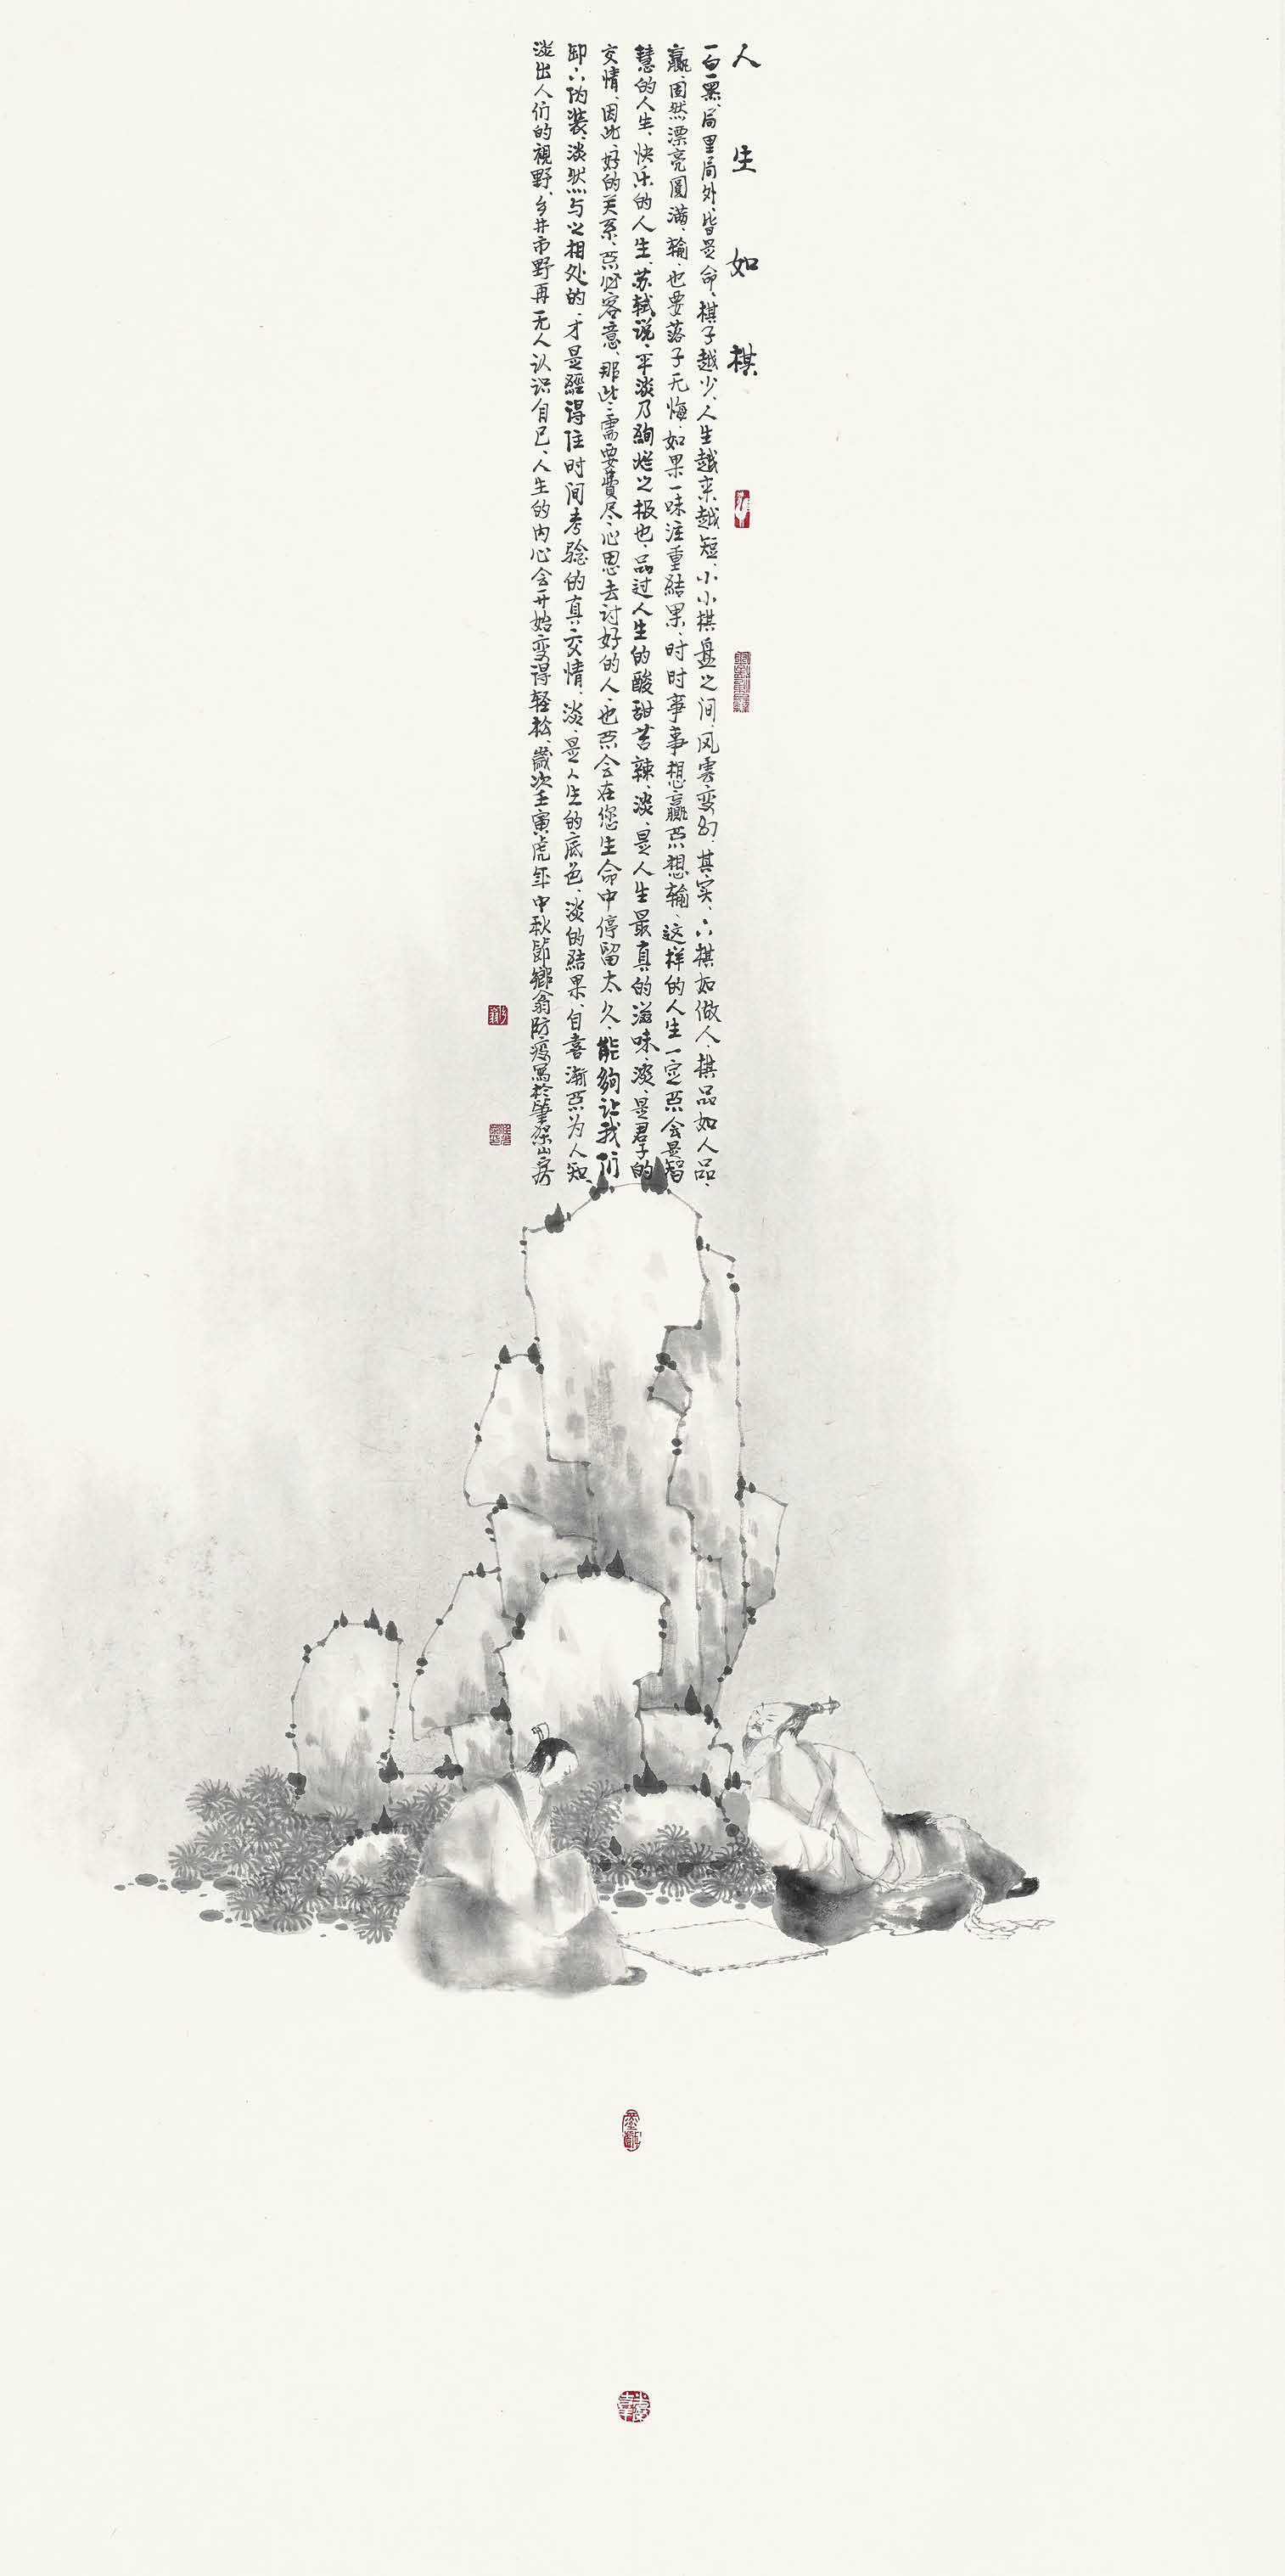 人生如棋
一白一黑、局里局外、皆是命、棋子越少、人生越来越短、小小棋盘之间、风雲变幻、其实、下棋如做人、棋品如人品、
赢、固然漂亮圆满、输、也要落子无悔、如果一味注重结果、时时事事想赢不想输、这样的人生一定不会是智
慧的人生、快乐的人生、苏轼说、平淡乃绚烂之极也、品过人生的酸甜苦辣、淡、是人生最真的滋味、淡、是君子的
交情、因此、好的关系、不必客意、那些需要費尽心思去讨好的人、也不会在您生命中停留太久、能夠让我们
卸下伪装、淡然与之相处的、才是經得住时间考验的真交情、淡、是人生的底色、淡的結果、自喜渐不为人知、
淡出人们的視野、乡井市野再无人认识自己、人生的内心会开始变得轻松、歲次壬寅虎年中秋節鄉翁防疫寫於筆架山房